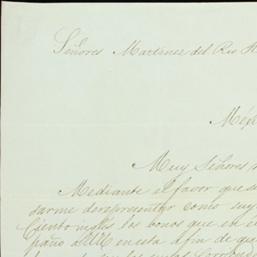 Señores Martinez del Rio H
Méx
Muy Señores
Mediante el favor que se
darme de representar como suy
Ciento ingles los bonos que en e
paño en esta á fin de que